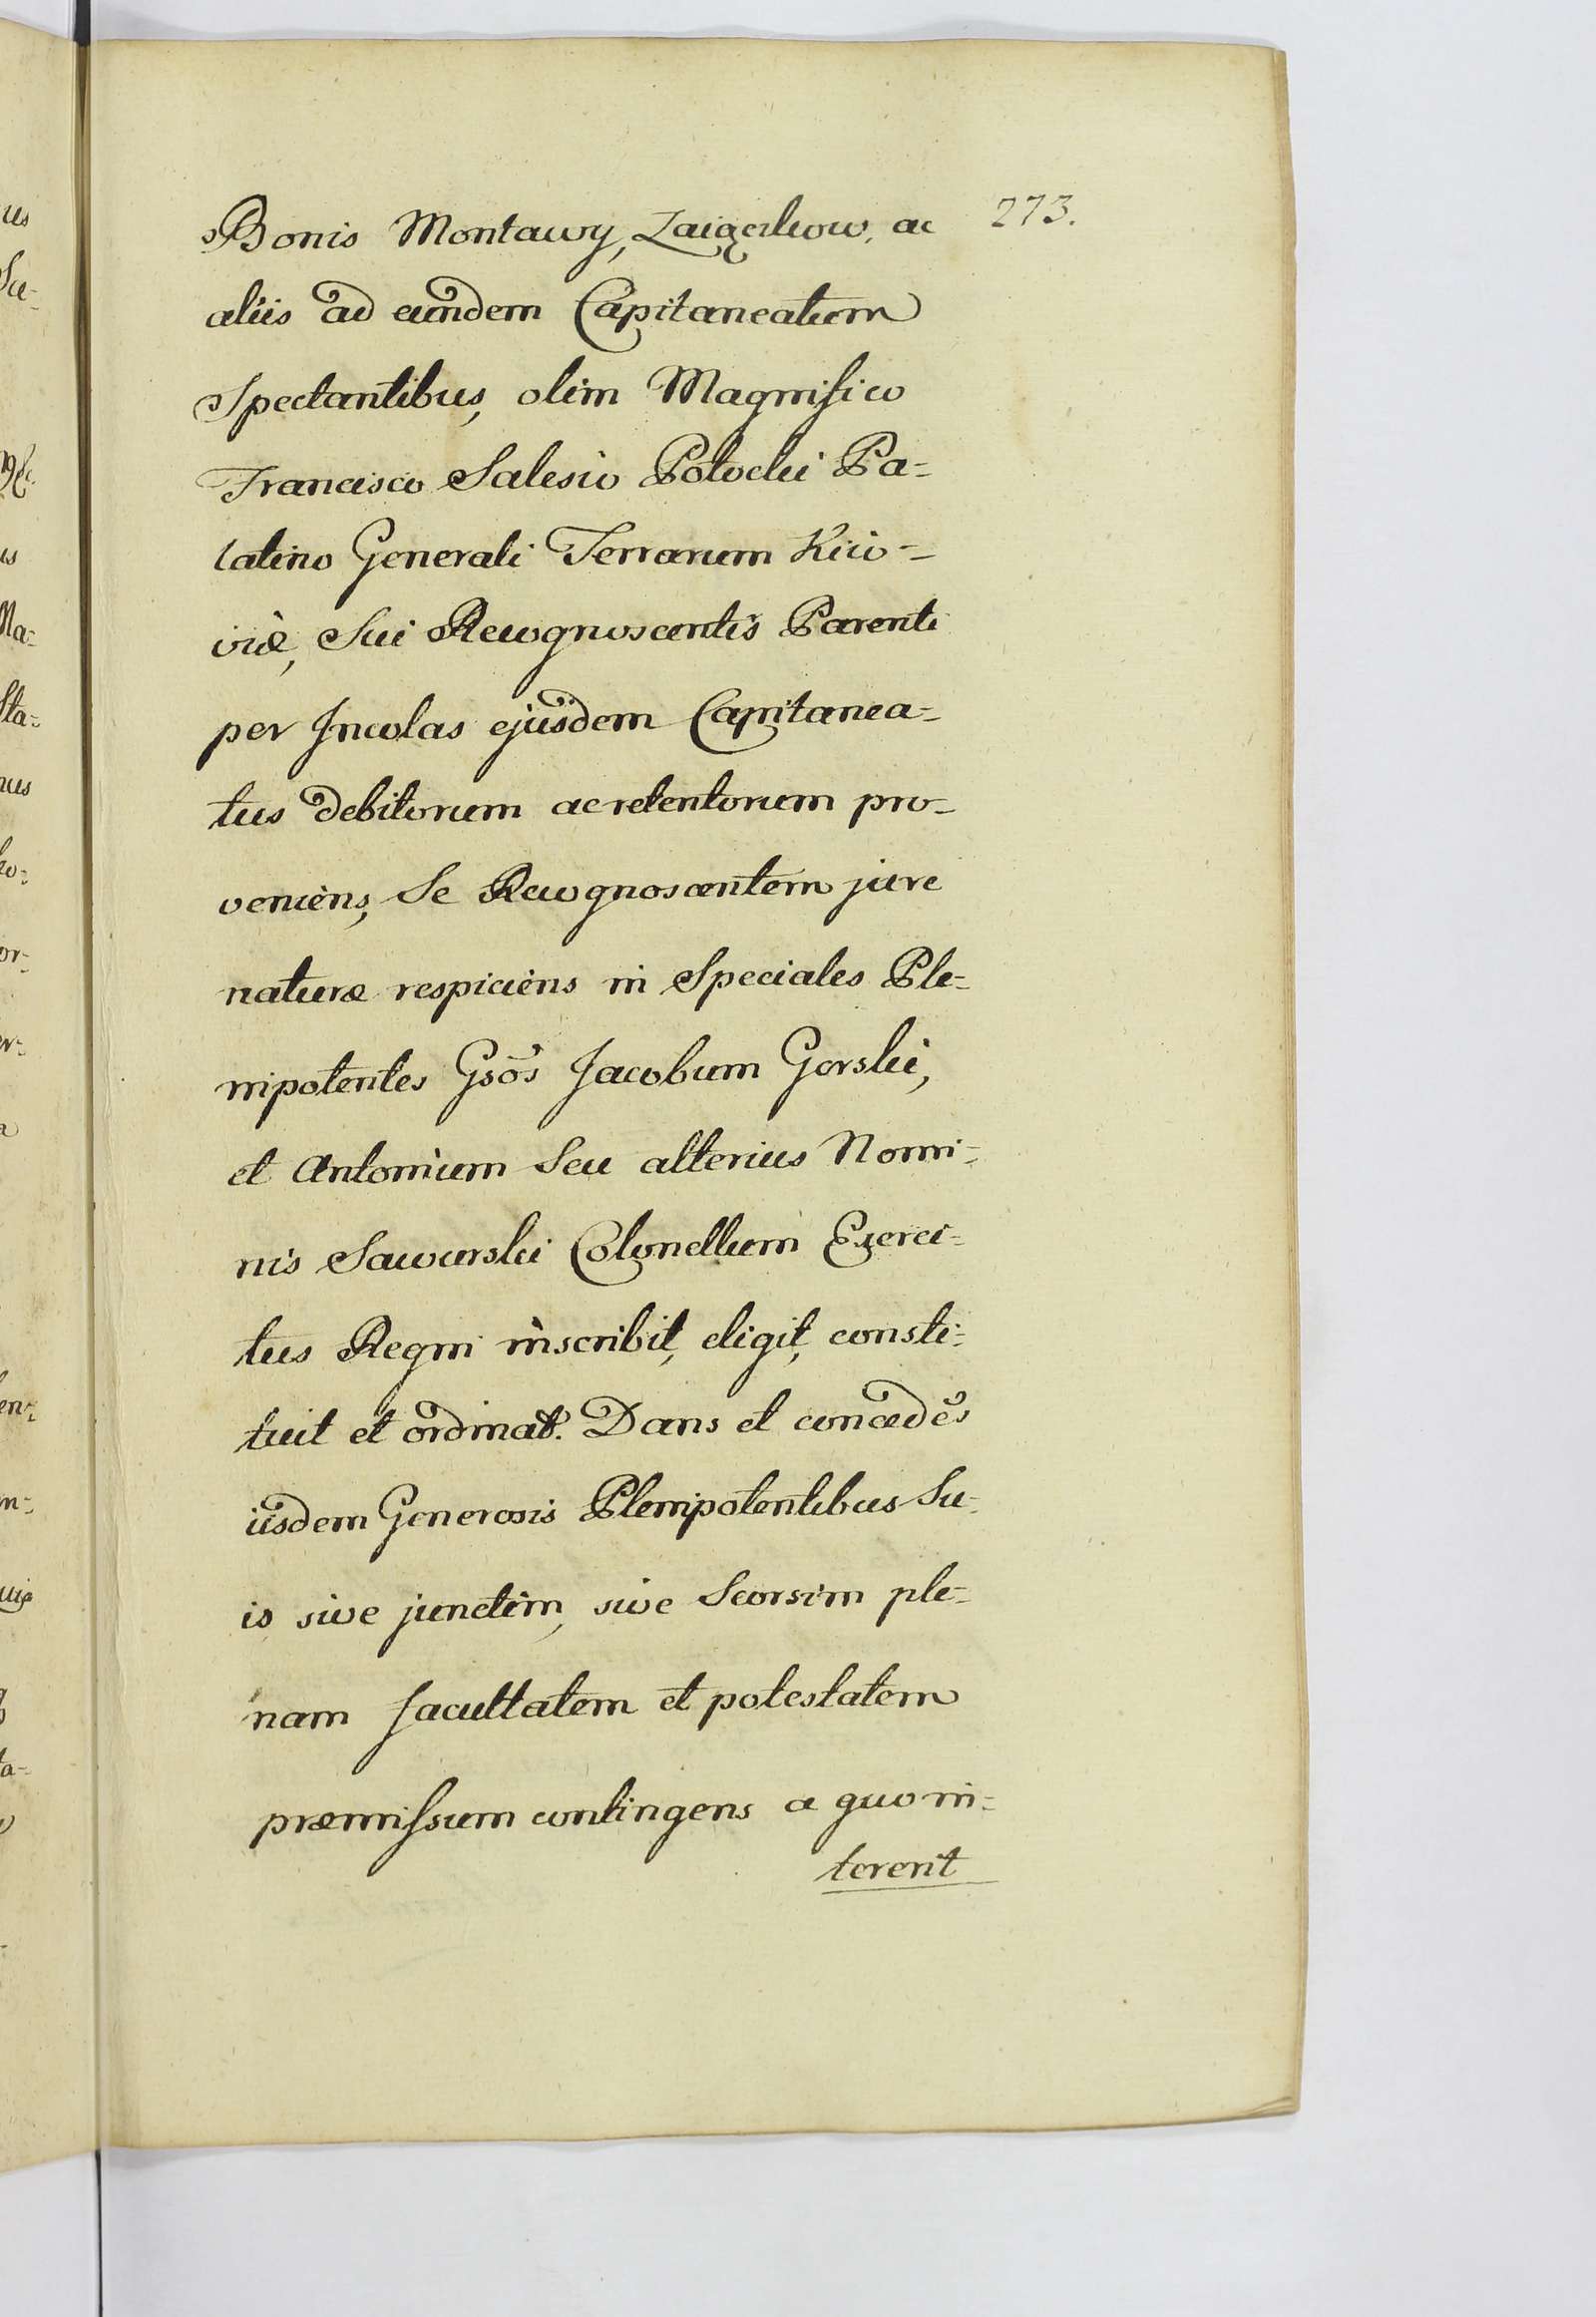 Bonis Montawy, ac 273.
aliis ad eundem Capitaneatum
Spectantibus, olim Magnifico
Francisco Salesio Potocki Pa=
latino Generali Terrarum Kiio=
viæ, Sui Recognoscentis Parenti
per Incolas ejusdem Capitanea=
tus debitorum ac retentorum pro=
veniens, Se Recognoscentem jure
naturæ respiciens in Speciales Ple=
nipotentes Gsõs Jacobum Gorski,
et Antonium Seu alterius Nomi=
nis Sawurski Colonellum Exerci=
tus Regni inscribit, eligit, consti=
tuit et ordinat. Dans et concedẽs
iisdem Generosis Plenipotentibus Su=
is sive junctim, sive Seorsim ple=
nam facultatem et potestatem
præmissum contingens a quo in=
tererit
us
Su=
is
Ma=
Sta=
nus
ko=
or=
er=
a
en=
m=
ta=